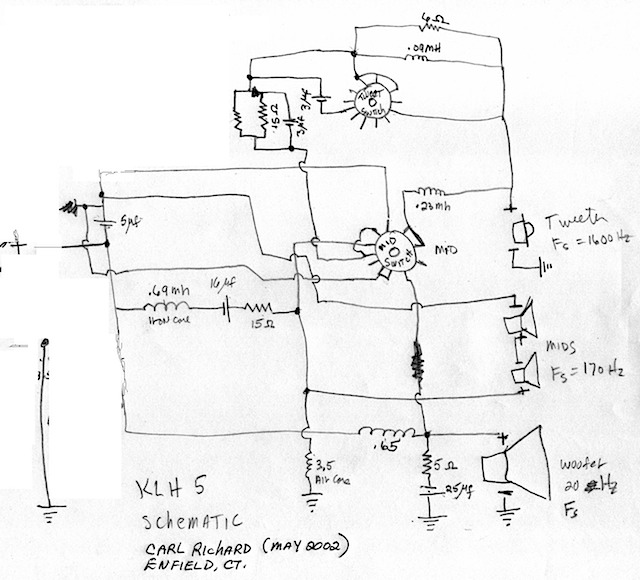 6Ω
.09mH
.15Ω
3µf
3µf
TWEET
SWITCH
5µf
+
.23mh
MID
SWITCH
MID
+
Tweeter
Fs = 1600 Hz
.69mh
IRON Core
16µf
15Ω
+
+
MIDS
Fs = 170 Hz
.65
+
3.5
Air Core
5Ω
25µf
woofer
20 Hz
Fs
KLH 5
SCHEMATIC
CARL RICHARD (MAY 2002)
ENFIELD, CT.